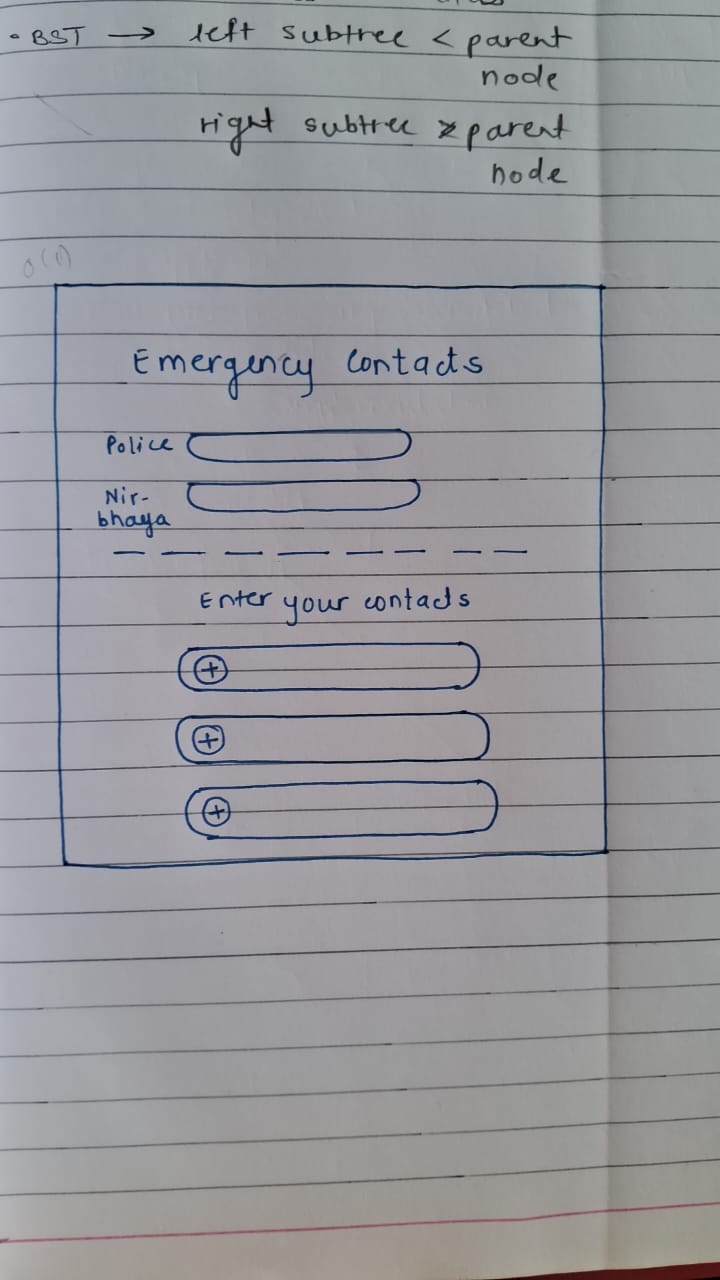 • BST → left subtree < parent
node
right subtree > parent
node
O(1)
Emergency Contacts
Police
Nir-
bhaya
Enter your contacts
+
+
+